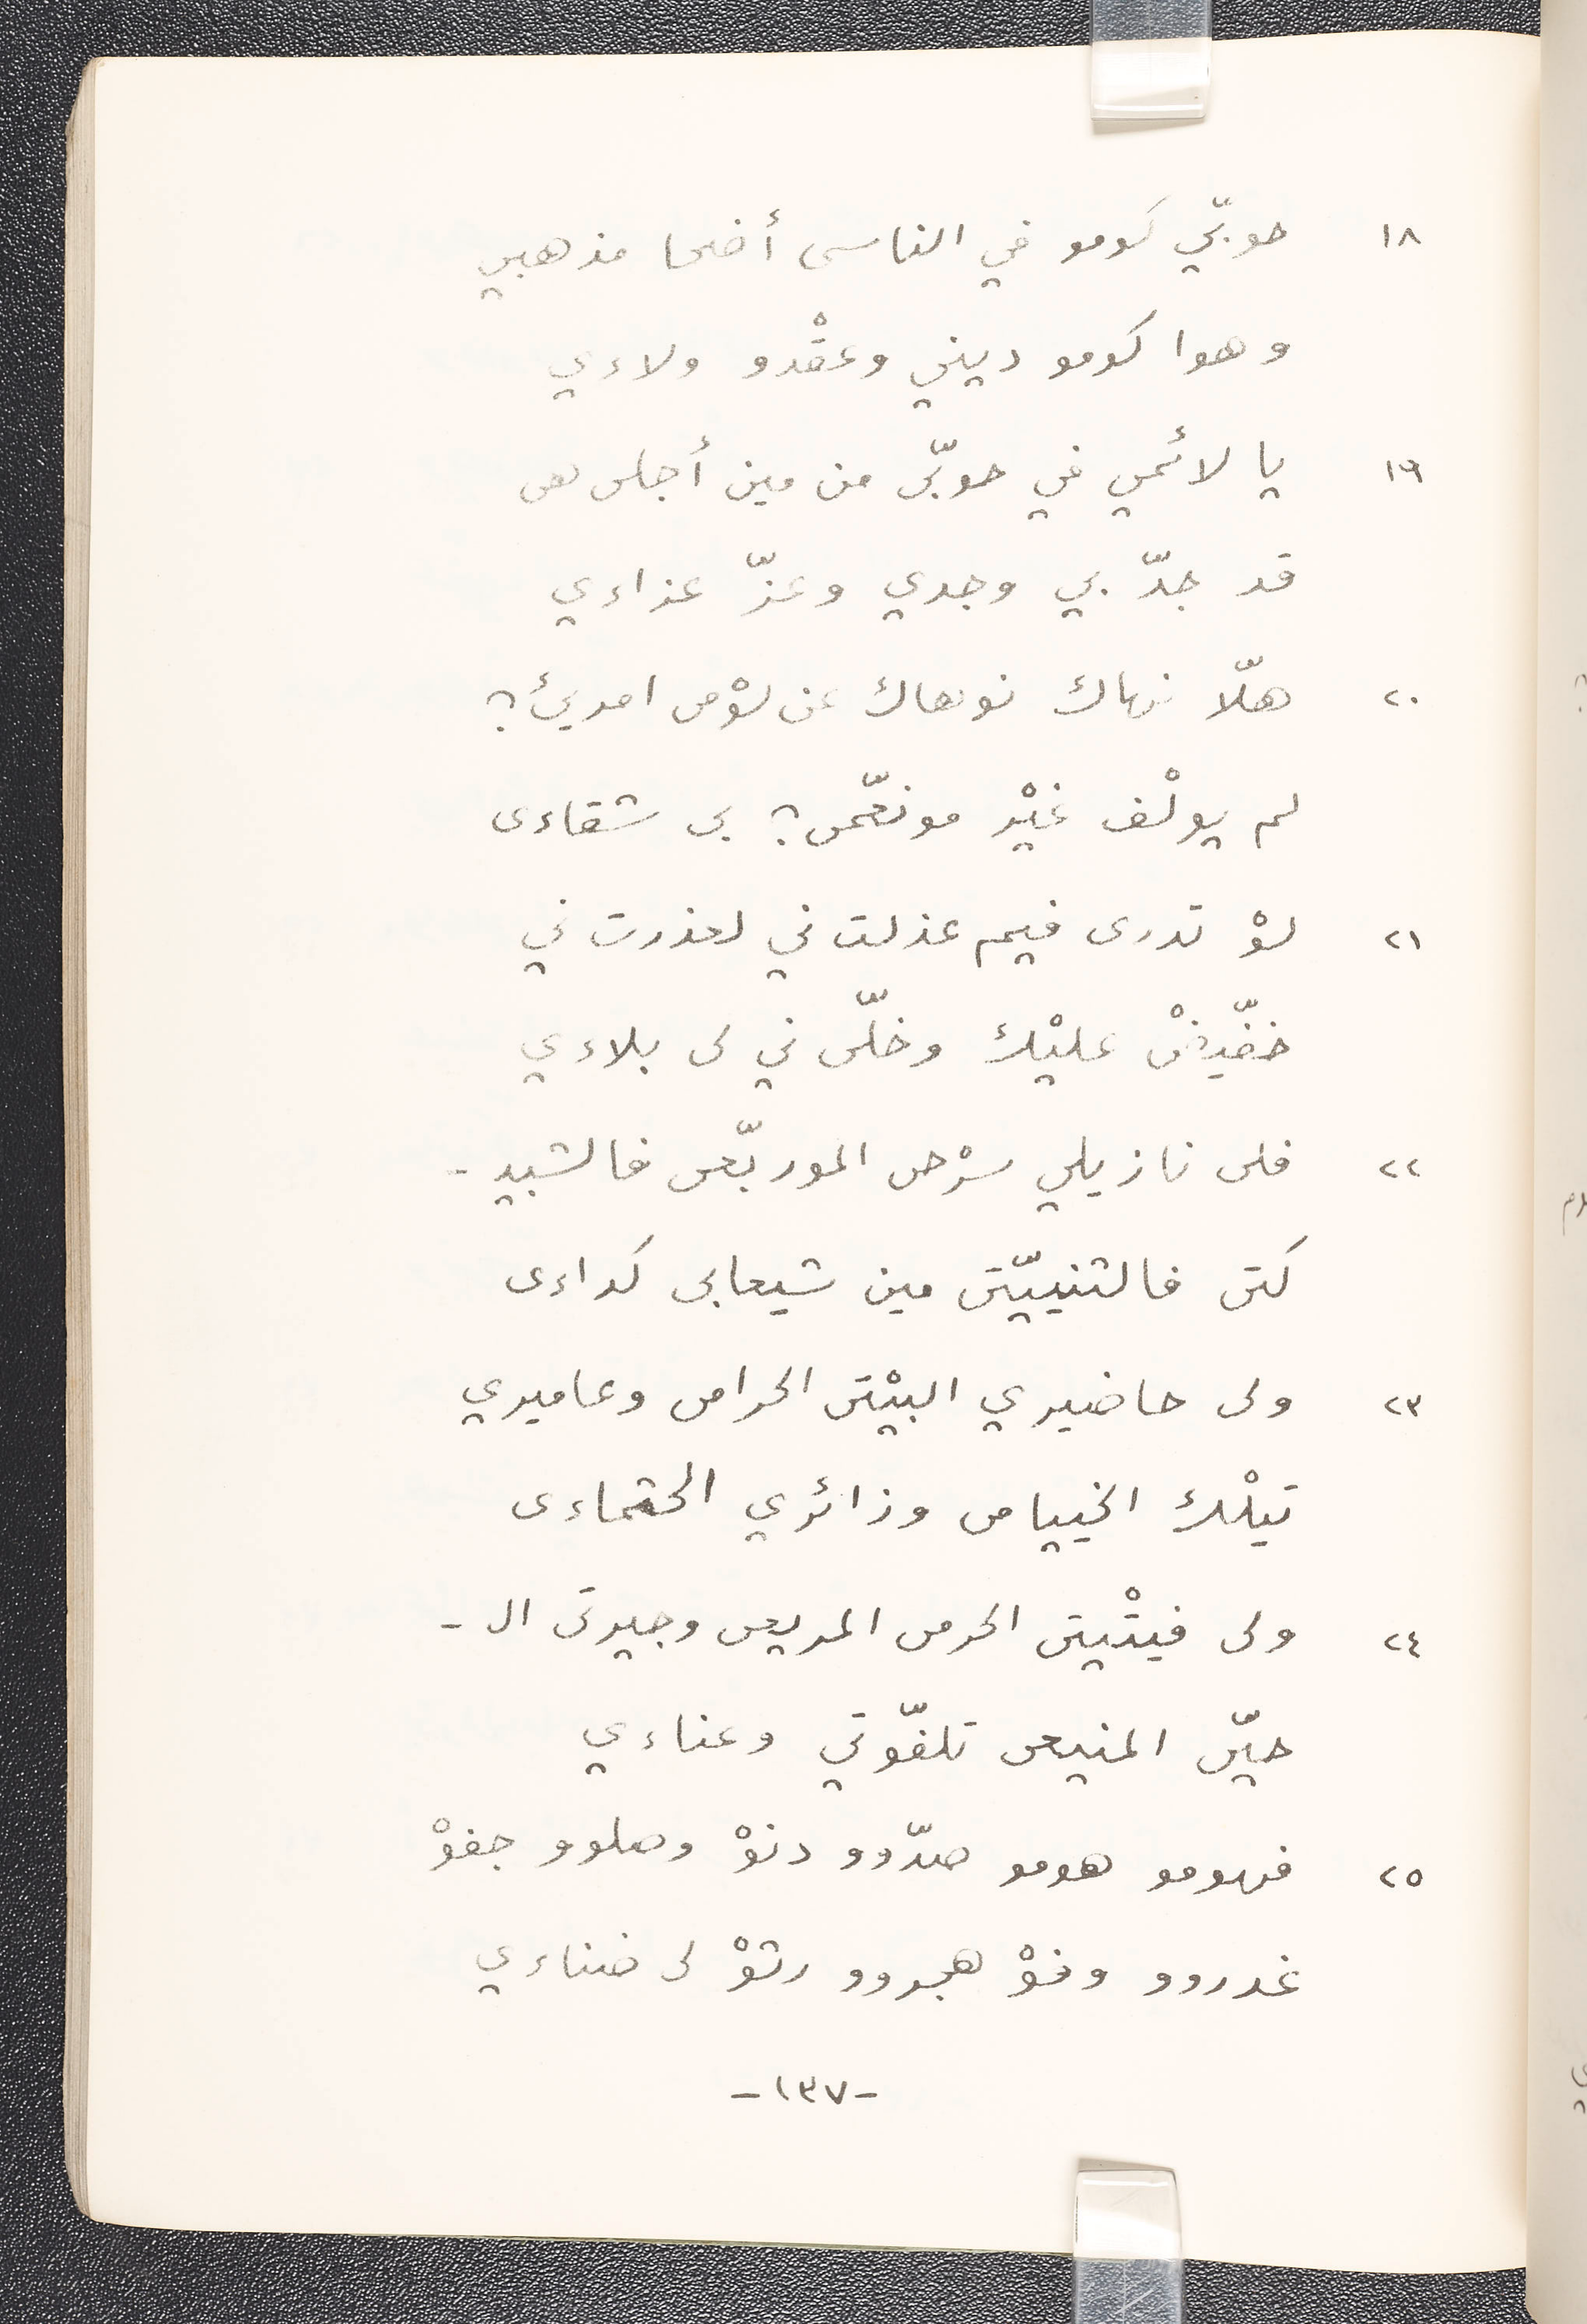 ١٨ حوبّي كومو في الناسى أضحا مذهبي
وهوا كومو ديني وعقْدو ولاءي
١٩ يا لائمي في حوبّى من مين أجلى هى
قد جدّ بي وجدي وعزّ عزاءي
٢٠ هلّا نهاك نوهاك عن لوْمى امرئ؟
لم يولْف غيْر مونعّمى؟ بى شقاءى
٢١ لوْ تدرى فيم عذلت ني لعذرت ني
خفّيضْ عليْك وخلّى ني لى بلاءي
٢٢ فلى نازيلي سرْحى الموربّعى فالشبيـ -
كتى فالثنييّتى مين شيعابى كداءى
٢٣ ولى حاضيري البيْتى الحرامى وعاميري
تيلْك الخييامى وزائري الحثماءى
٢٤ ولى فيتْيتى الحرمى المريعى وجيرتى ال -
حيّى المنيعى تلفّوتي وعناءي
٢٥ فهومو هومو صدّوو دنوْ وصلوو جفوْ
غدروو وفوْ هجروو رثوْ لى ضناءي
-١٣٧-